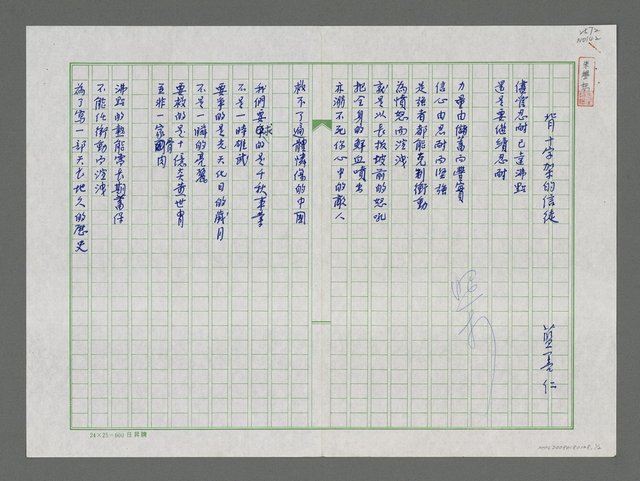 背十字架的信徒
藍善仁
儘管忍耐已達沸點
還是要繼續忍耐
力量由儲蓄而豐實
信心由忍耐而堅強
是強者都能克制衝動
為憤怒而洩
就是以長坂坡前的怒吼
把全身的鮮血噴出
亦溺不死你心中的敵人
救不了遍體傷的中國
我們要求的是千秋事業
不是一時雄武
要爭的是光天化日的歲月
不是一瞬的亮麗
要救的是十億炎黃世胄
並非一家骨肉
沸點的熱能需長期儲存
不能任衝動而洩
為了寫一部天長地久的歷史
24×25=600